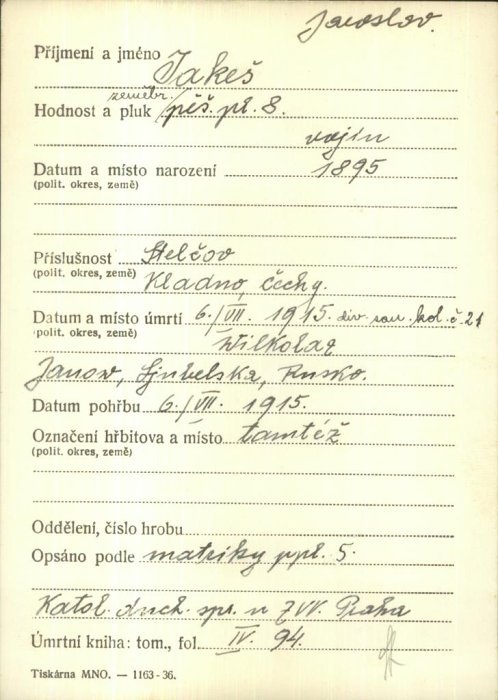 Jaroslav.
Příjmení a jméno Jakeš
zeměbr.
Hodnost a pluk pěš. pl. 8.
vojín
Datum a místo narození 1895
(polit. okres, země)
Příslušnost Stelčov
(polit. okres, země) Kladno, Čechy.
Datum a místo úmrtí 6./VII. 1915. div. san. kol. č. 21
(polit. okres, země) Wilkolaz
Janow, Ljubelska, Rusko.
Datum pohřbu 6./VII. 1915.
Označení hřbitova a místo tamtéž
(polit. okres, země)
Oddělení, číslo hrobu
Opsáno podle matriky ppl. 5.
Katol. duch. spr. u ZVV. Praha
Úmrtní kniha: tom., fol. IV. 94.
Tiskárna MNO. — 1163-36.